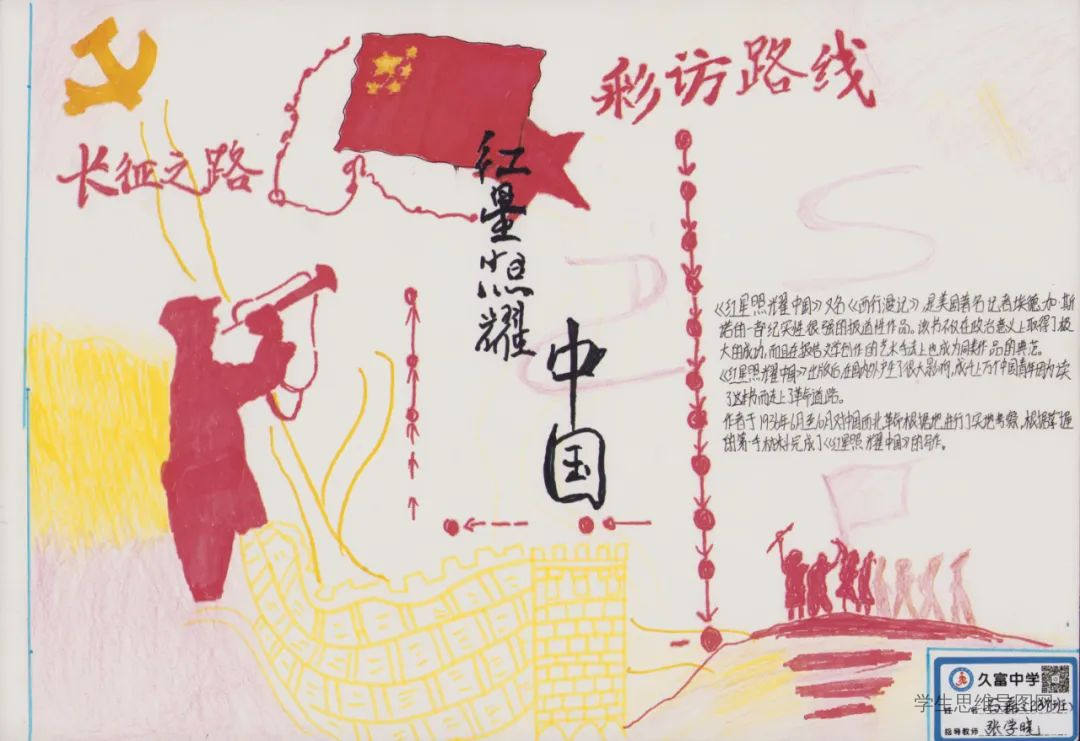 彩访路线
长征之路
红星照耀
中国
《红星照耀中国》又名《西行漫记》是美国著名记者埃德加·斯
诺的一部纪实性很强的报道性作品。该书不仅在政治意义上取得了极
大的成功，而且在报告文学创作的艺术手法上也成为同类作品的典范。
《红星照耀中国》出版后在国内外产生了很大影响，成千上万个中国青年因为读
了这本书而走上了革命道路。
作者于1936年6月至10月对中国西北革命根据地进行了实地考察，根据掌握
的第一手材料完成了《红星照耀中国》的写作。
久富中学
学生思维导图网
姓名
指导教师 张学晓